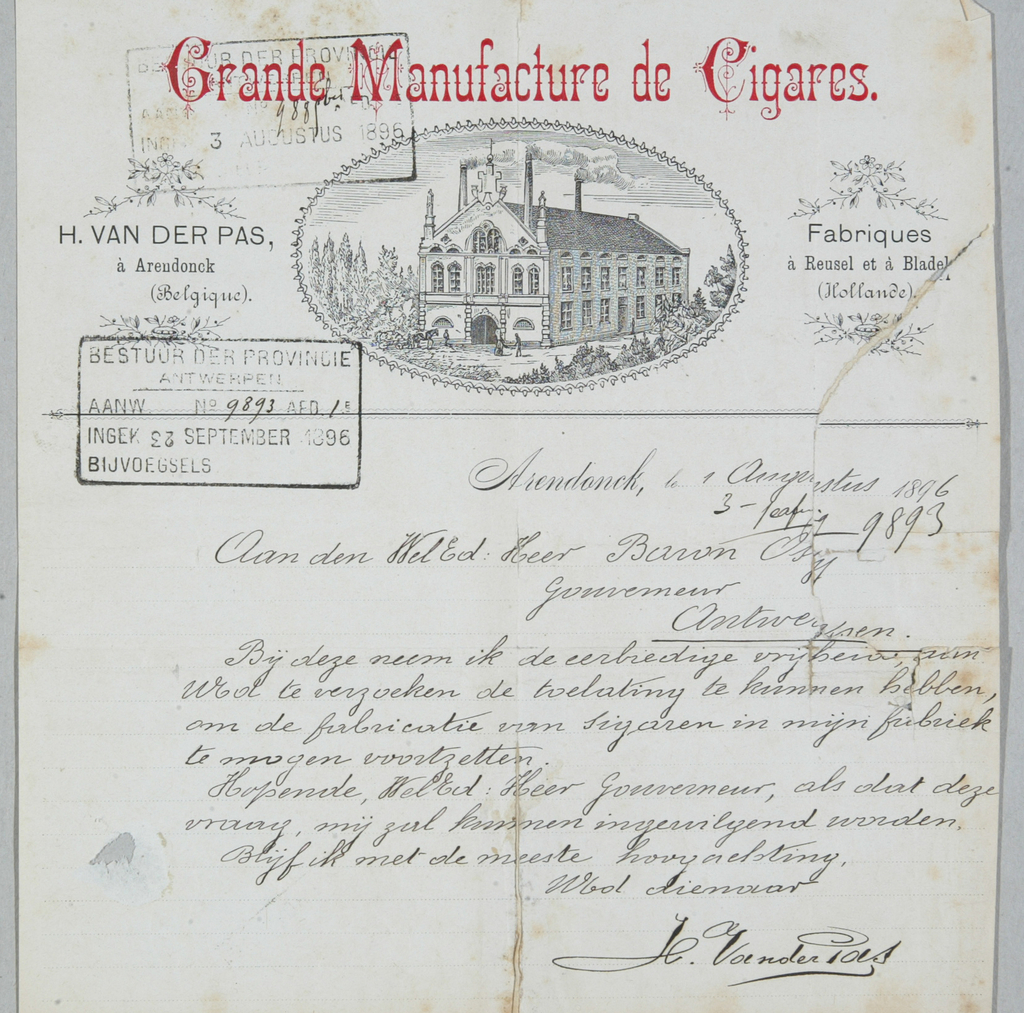 Grande Manufacture de Cigares.
BESTUUR DER PROVINCIE
INGEK 3 AUGUSTUS 1896
H. VAN DER PAS,
à Arendonck
(Belgique).
Fabriques
à Reusel et à Bladel
(Hollande).
BESTUUR DER PROVINCIE
ANTWERPEN
AANW. No 9893 AFD. 1E
INGEK 23 SEPTEMBER 1896
BIJVOEGSELS
Arendonck, le 1 Augustus 1896
3 9893
Aan den WelEd: Heer Baron Osy
Gouverneur
Antwerpen.
Bij deze neem ik de eerbiedige vrijheid, aan
WEd te verzoeken de toelating te kunnen hebben,
om de fabricatie van sigaren in mijn fabriek
te mogen voortzetten.
Hopende, WelEd: Heer Gouverneur, als dat deze
vraag, mij zal kunnen ingewilgend worden.
Blijf ik met de meeste hoogachting,
WEd dienaar
H. Van der Pas